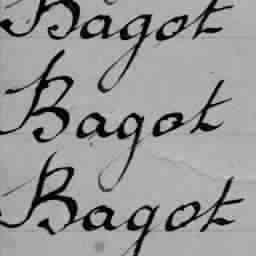 Bagot
Bagot
Bagot